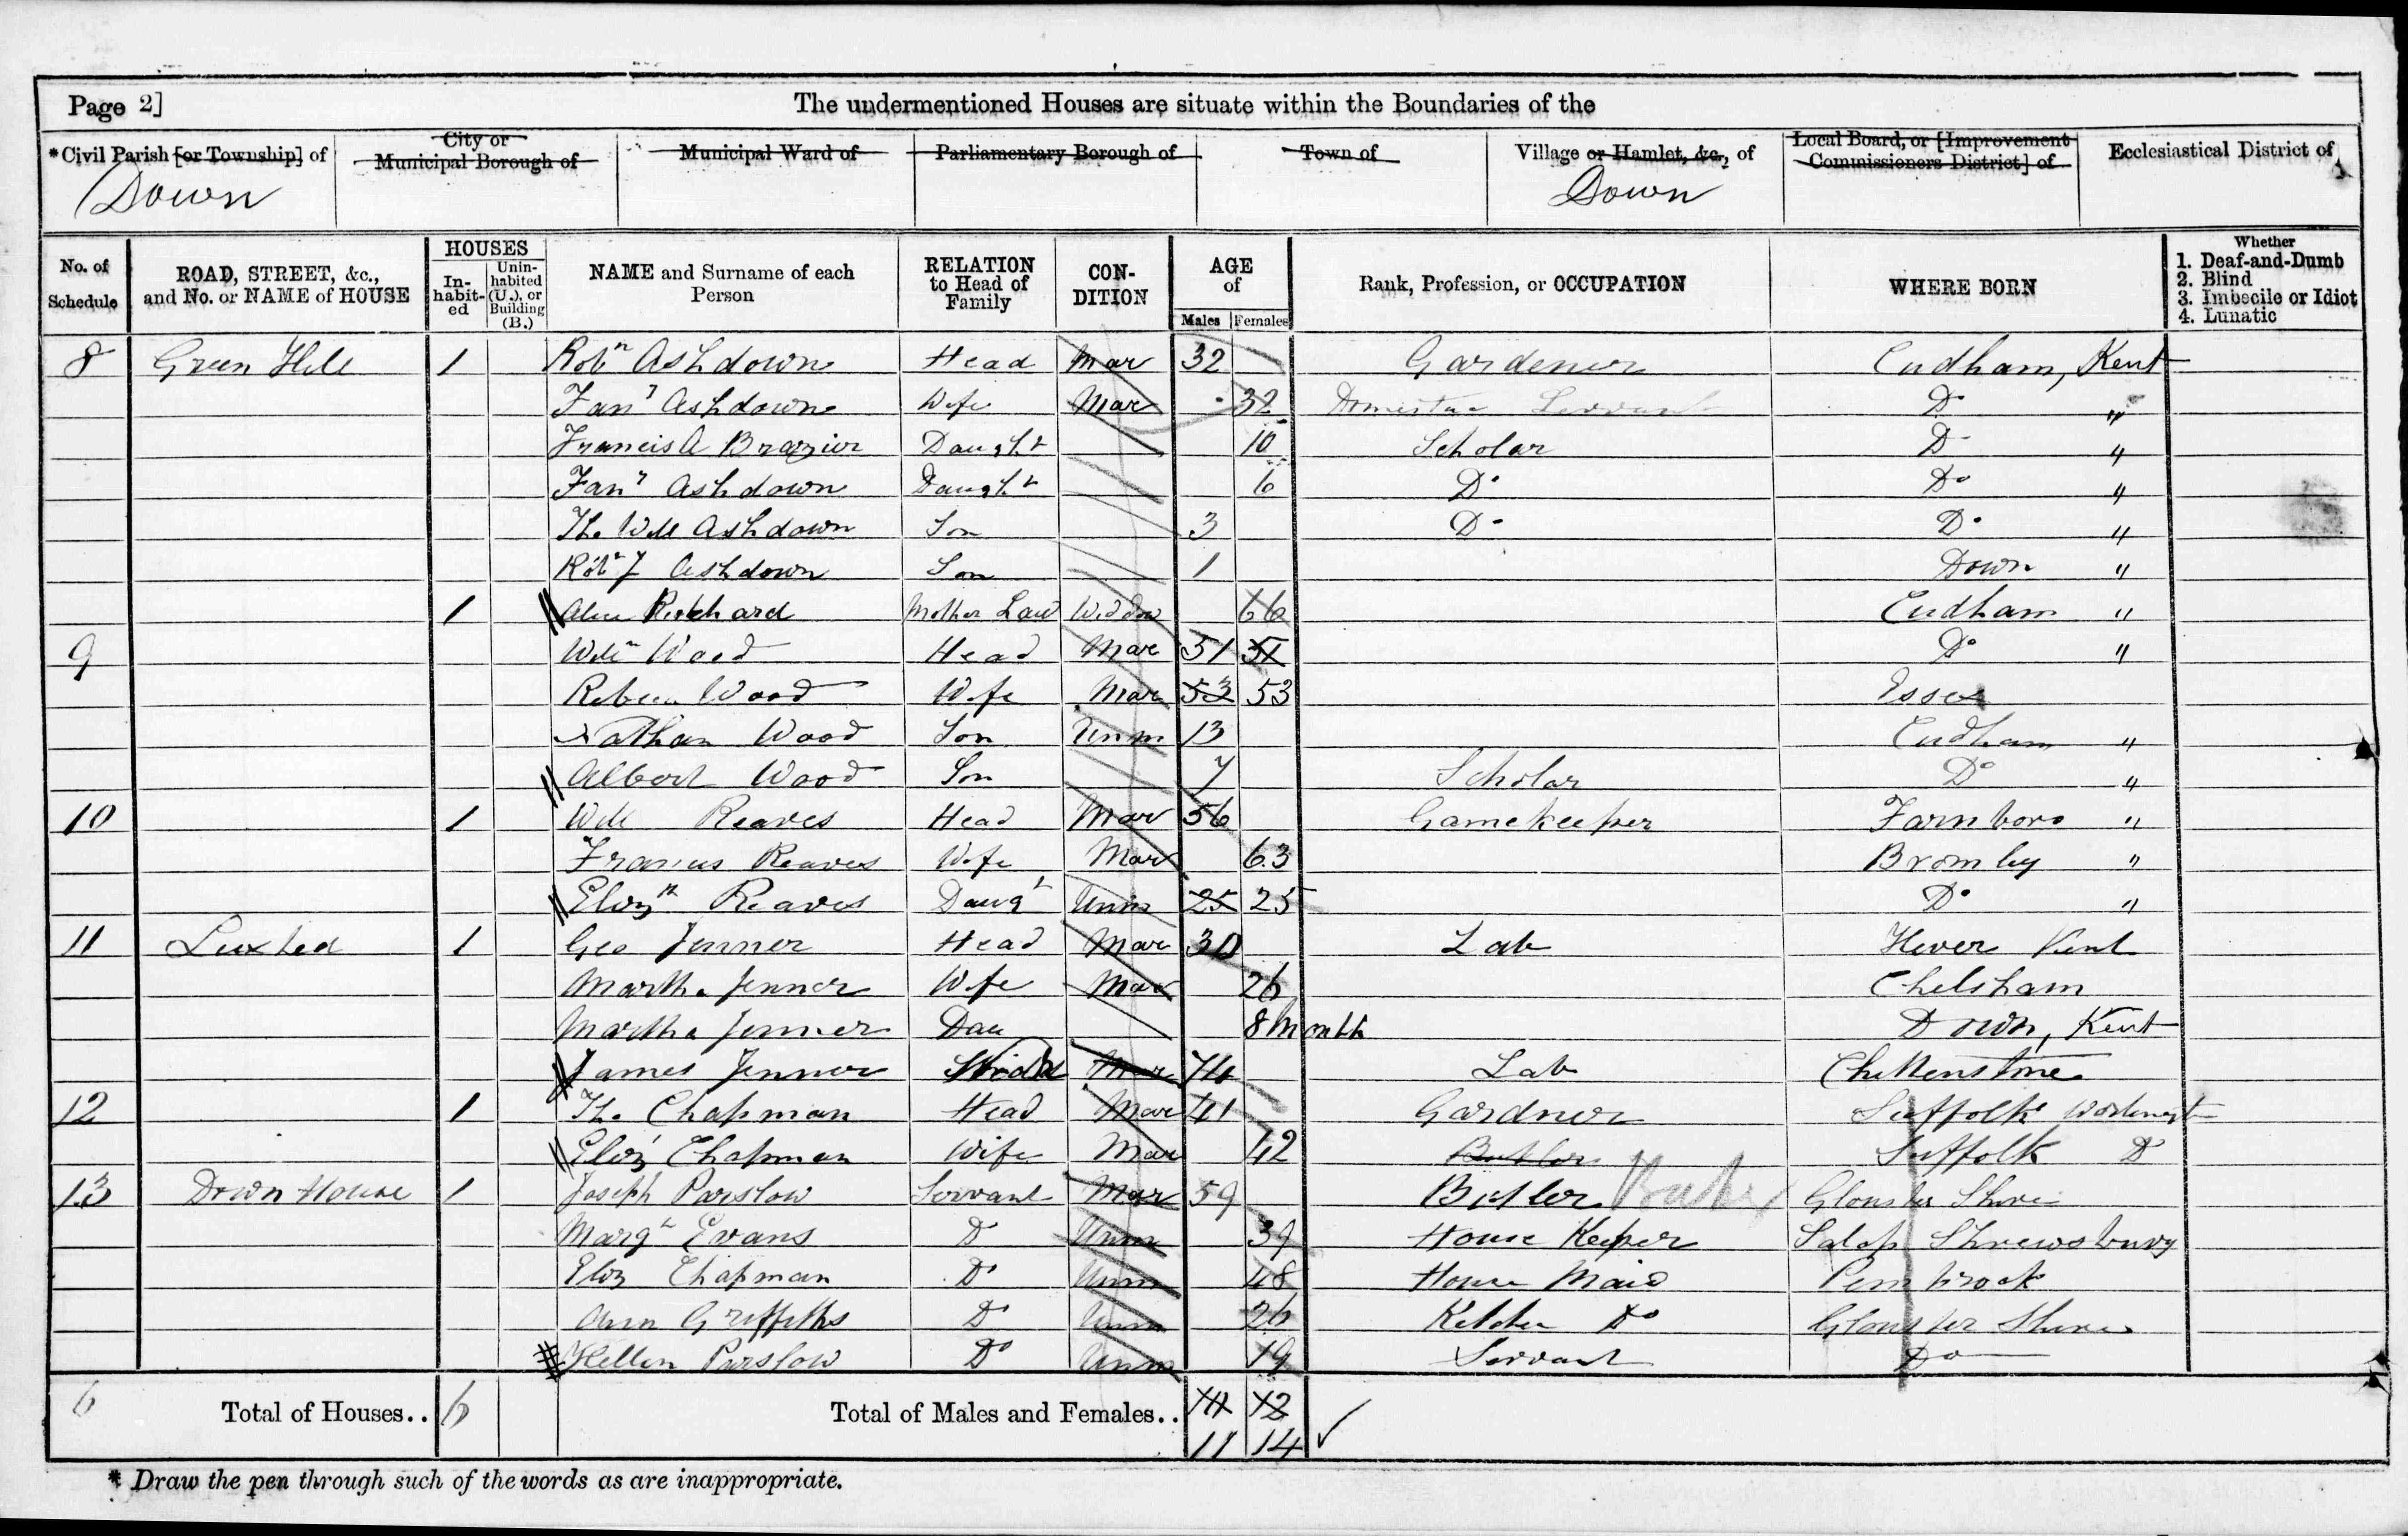 Page 2]
The undermentioned Houses are situate within the Boundaries of the
*Civil Parish [or Township] of
City or Municipal Borough of
Municipal Ward of
Parliamentary Borough of
Town of
Village or Hamlet, &c., of
Local Board, or [Improvement Commissioners District] of
Ecclesiastical District of
Down
Down
No. of Schedule
ROAD, STREET, &c., and No. or NAME of HOUSE
HOUSES
In-habit-ed
Unin-habited (U.), or Building (B.)
NAME and Surname of each Person
RELATION to Head of Family
CON-DITION
AGE of
Males Females
Rank, Profession, or OCCUPATION
WHERE BORN
Whether
1. Deaf-and-Dumb
2. Blind
3. Imbecile or Idiot
4. Lunatic
8 Green Hill 1 Robt Ashdown Head Mar 32 Gardener Cudham, Kent
Fany Ashdown Wife Mar 32 Domestic Servant Do "
Francis A Brazier Daught 10 Scholar D "
Fany Ashdown Daught 6 Do Do "
Th. Will Ashdown Son 3 Do Do "
Robt J Ashdown Son 1 Down "
1 Mother Law Widdow 66 Cudham "
9 Willm Wood Head Mar 51 51 Do "
Wood Wife Mar 53 53 Essex
Nathan Wood Son Unm 13 Cudham "
Albert Wood Son 7 Scholar Do "
10 1 Will Reaves Head Mar 56 Gamekeeper Farnboro "
Reaves Wife Mar 63 Bromley "
Reaves Daugt Unm 25 25 Do "
11 Luxted 1 Geo Jenner Head Mar 30 Lab Hever Kent
Martha Jenner Wife Mar 26 Chelsham
Martha Jenner Dau 8 Month Down, Kent
James Jenner Mar 74 Lab
12 1 Th. Chapman Head Mar 41 Gardner Suffolk
Eliz Chapman Wife Mar 42 Butler Suffolk D
13 Down House 1 Joseph Parslow Servant Mar 59 Butler Glouster Shire
Margt Evans D Unm 39 House Keeper Salop Shrewsbury
Eliz Chapman Do Unm 48 House Maid Pembrook
Ann Griffiths Do Unm 26 Kitchen Do Glouster Shire
Hellen Parslow Do Unm 19 Servant Do
6 Total of Houses.. 6 Total of Males and Females.. 11 12
11 14
* Draw the pen through such of the words as are inappropriate.